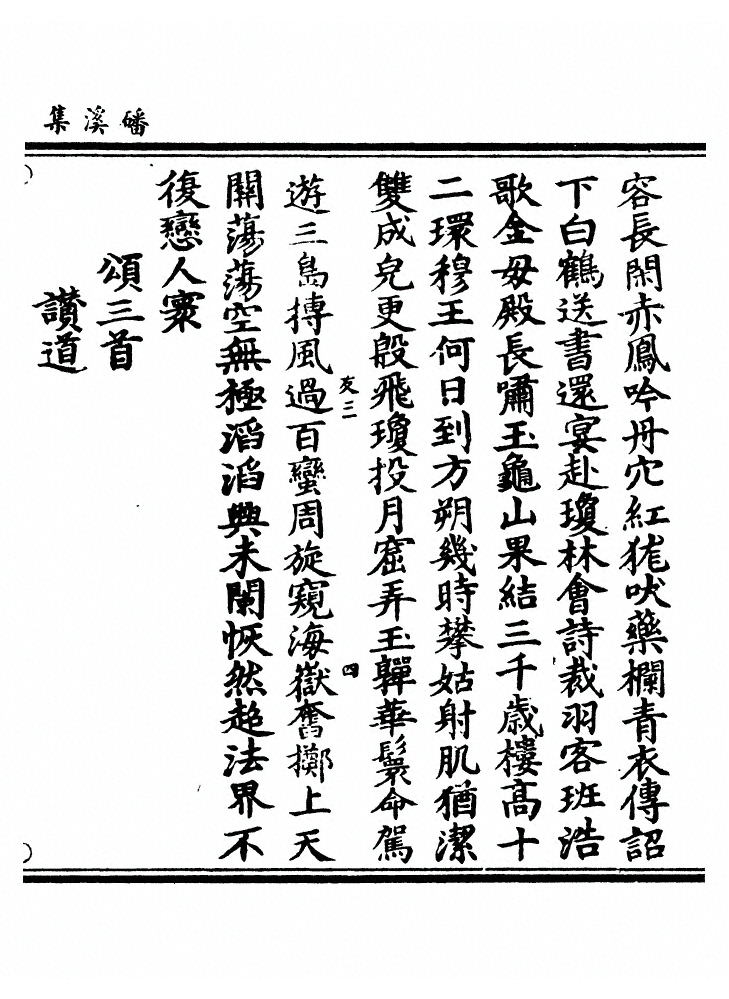 磻溪集
容長閑赤鳳吟丹穴紅狵吠藥欄青衣傳詔
下白鶴送書還宴赴瓊林會詩裁羽客班浩
歌金毋殿長嘯玉龜山果結三千歲樓高十
二環穆王何日到方朔幾時攀姑射肌猶潔
雙成皃更殷飛瓊投月窟弄玉嚲華鬟命駕
遊三島摶風過百蠻周旋窺海嶽奮擲上天
關蕩蕩空無極滔滔興未闌恢然超法界不
復戀人寰
頌三首
讚道
亥三
四